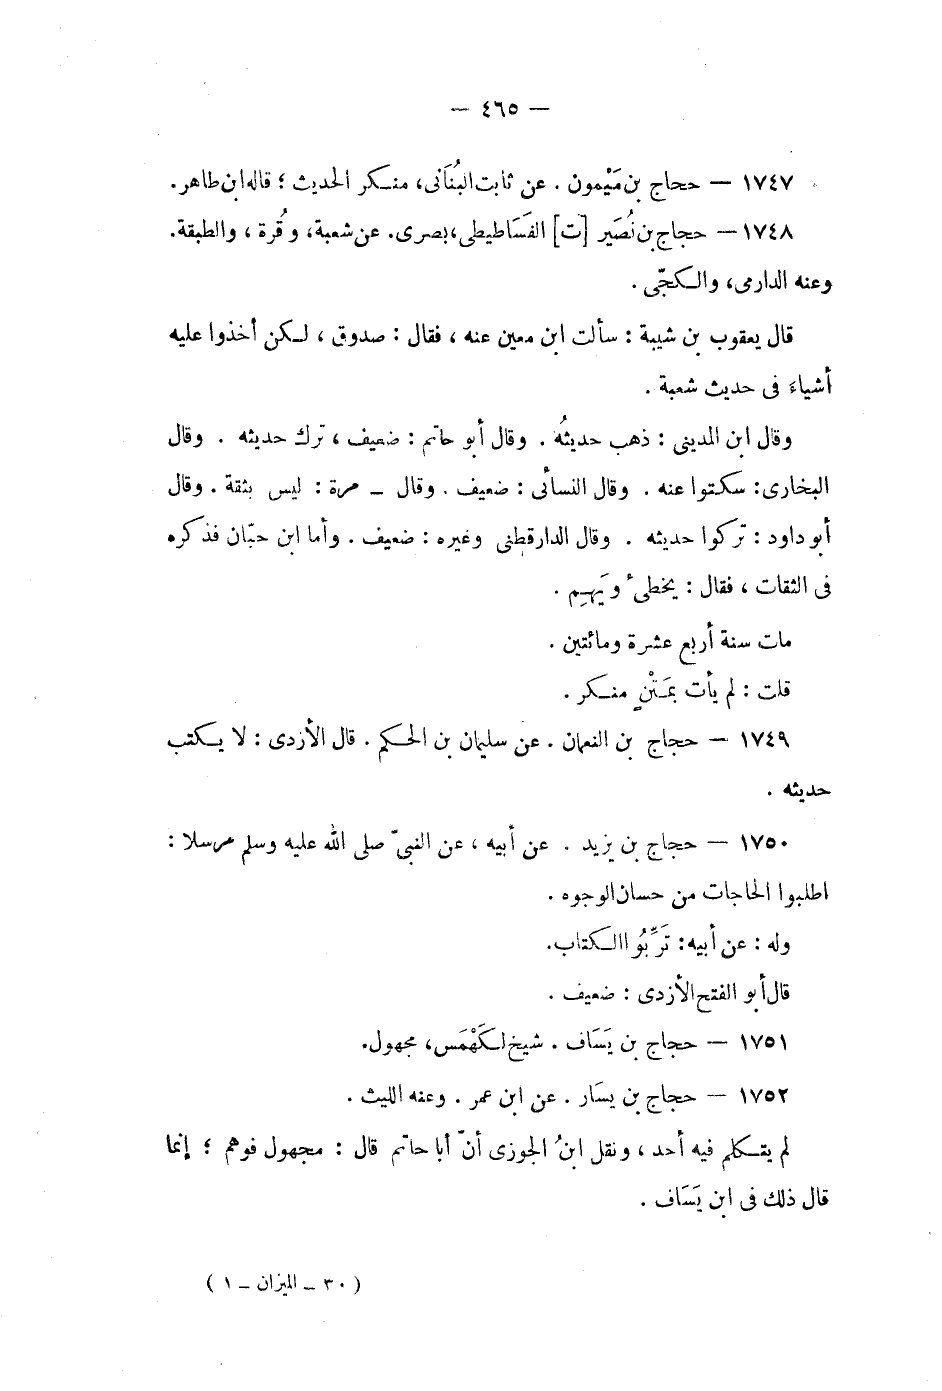 — ٤٦٥ —
١٧٤٧ — حجاج بن مَيْمون . عن ثابت البُنَانى، منكر الحديث ؛ قاله ابن طاهر.
١٧٤٨ — حجاج بن نُصَير [ت] الفَسَاطيطى، بصرى. عن شعبة، وقُرة ، والطبقة.
وعنه الدارمى، والكجّى .
قال يعقوب بن شيبة : سألت ابن معين عنه ، فقال : صدوق ، لكن أخذوا عليه
أشياءَ فى حديث شعبة .
وقال ابن المدينى : ذهب حديثُه . وقال أبو حاتم : ضعيف ، ترك حديثه . وقال
البخارى: سكتوا عنه . وقال النسائى : ضعيف . وقال – مرة : ليس بثقة . وقال
أبو داود : تركوا حديثه . وقال الدارقطنى وغيره : ضعيف . وأما ابن حبّان فذكره
فى الثقات ، فقال : يخطىٔ ويَهِم .
مات سنة أربع عشرة ومائتين .
قلت : لم يأت بمَتْنٍ منكر .
١٧٤٩ — حجاج بن النعمان . عن سليمان بن الحكم . قال الأزدى : لا يكتب
حديثه .
١٧٥٠ — حجاج بن يزيد . عن أبيه ، عن النبىّ صلى الله عليه وسلم مرسلا :
اطلبوا الحاجات من حسان الوجوه .
وله : عن أبيه: تَرِّبُوا الكتاب.
قال أبو الفتح الأزدى : ضعيف .
١٧٥١ — حجاج بن يَسَاف . شيخ لكَهْمَس، مجهول.
١٧٥٢ — حجاج بن يسَار . عن ابن عمر . وعنه الليث .
لم يتكلم فيه أحد ، ونقل ابنُ الجوزى أنّ أبا حاتم قال : مجهول فوهم ؛ إنما
قال ذلك فى ابن يَسَاف .
( ٣٠ – الميزان – ١ )